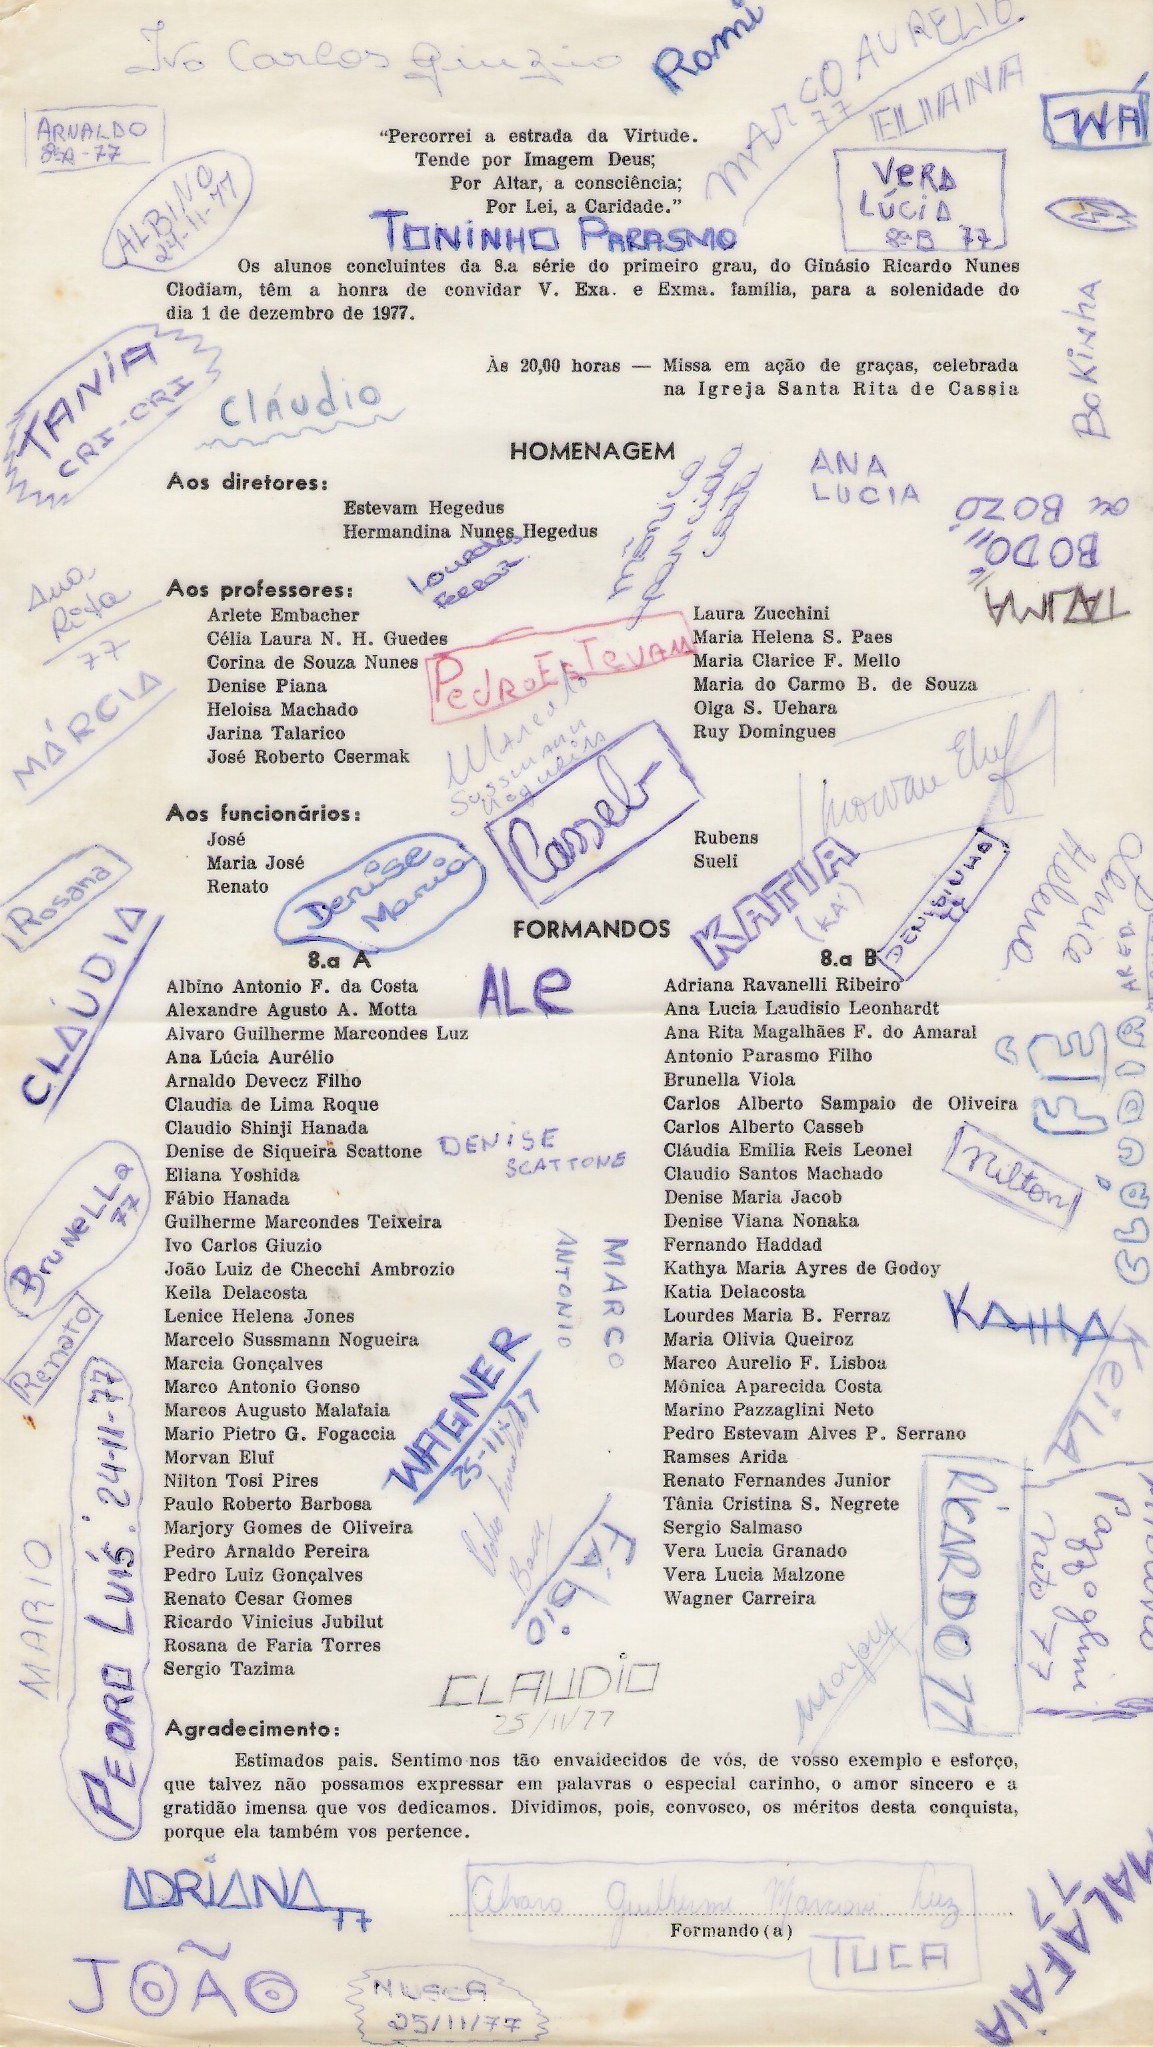 Ivo Carlos Giuzio
Rami
MARCO AURELIO
77
ELIANA
WÁ
ARNALDO
8ªA-77
ALBINO
24-11-77
VERA
LÚCIA
8ªB 77
“Percorrei a estrada da Virtude.
Tende por Imagem Deus;
Por Altar, a consciência;
Por Lei, a Caridade.”
TONINHO PARASMO
Os alunos concluintes da 8.a série do primeiro grau, do Ginásio Ricardo Nunes
Clodiam, têm a honra de convidar V. Exa. e Exma. família, para a solenidade do
dia 1 de dezembro de 1977.
BOKINHA
Às 20,00 horas — Missa em ação de graças, celebrada
na Igreja Santa Rita de Cassia
TANIA
CRI-CRI
CLÁUDIO
HOMENAGEM
Aos diretores:
Estevam Hegedus
Hermandina Nunes Hegedus
ANA
LUCIA
Mônica
Aparecida
Costa
ou BOZO
BODÓ
TAZIMA
Lourdes
Ferraz
Ana
Rita
77
Aos professores:
Arlete Embacher
Célia Laura N. H. Guedes
Corina de Souza Nunes
Denise Piana
Heloisa Machado
Jarina Talarico
José Roberto Csermak
Laura Zucchini
Maria Helena S. Paes
Maria Clarice F. Mello
Maria do Carmo B. de Souza
Olga S. Uehara
Ruy Domingues
PEDRO ESTEVAM
MÁRCIA
Marcelo
Sussmann
Nogueira
Casseb
Morvan Eluf
Aos funcionários:
José
Maria José
Renato
Rubens
Sueli
Denise
Maria
KATIA
(KÁ)
DENIDINHO
Lenice
Helena
Rosana
CLAÚDIA
FORMANDOS
8.a A
Albino Antonio F. da Costa
Alexandre Agusto A. Motta
Alvaro Guilherme Marcondes Luz
Ana Lúcia Aurélio
Arnaldo Devecz Filho
Claudia de Lima Roque
Claudio Shinji Hanada
Denise de Siqueira Scattone
Eliana Yoshida
Fábio Hanada
Guilherme Marcondes Teixeira
Ivo Carlos Giuzio
João Luiz de Checchi Ambrozio
Keila Delacosta
Lenice Helena Jones
Marcelo Sussmann Nogueira
Marcia Gonçalves
Marco Antonio Gonso
Marcos Augusto Malafaia
Mario Pietro G. Fogaccia
Morvan Eluf
Nilton Tosi Pires
Paulo Roberto Barbosa
Marjory Gomes de Oliveira
Pedro Arnaldo Pereira
Pedro Luiz Gonçalves
Renato Cesar Gomes
Ricardo Vinicius Jubilut
Rosana de Faria Torres
Sergio Tazima
8.a B
Adriana Ravanelli Ribeiro
Ana Lucia Laudisio Leonhardt
Ana Rita Magalhães F. do Amaral
Antonio Parasmo Filho
Brunella Viola
Carlos Alberto Sampaio de Oliveira
Carlos Alberto Casseb
Cláudia Emilia Reis Leonel
Claudio Santos Machado
Denise Maria Jacob
Denise Viana Nonaka
Fernando Haddad
Kathya Maria Ayres de Godoy
Katia Delacosta
Lourdes Maria B. Ferraz
Maria Olivia Queiroz
Marco Aurelio F. Lisboa
Mônica Aparecida Costa
Marino Pazzaglini Neto
Pedro Estevam Alves P. Serrano
Ramses Arida
Renato Fernandes Junior
Tânia Cristina S. Negrete
Sergio Salmaso
Vera Lucia Granado
Vera Lucia Malzone
Wagner Carreira
ALE
DENISE
SCATTONE
MARCO
ANTONIO
Nilton
BRUNELLA
77
Renato
WAGNER
25-11-77
KATIA
KEILA
Pazzaglini
Neto 77
RICARDO 77
FÁBIO
MARIO
PEDRO LUÍS. 24-11-77
Marjory
CLAUDIO
25/11/77
Agradecimento:
Estimados pais. Sentimo-nos tão envaidecidos de vós, de vosso exemplo e esforço,
que talvez não possamos expressar em palavras o especial carinho, o amor sincero e a
gratidão imensa que vos dedicamos. Dividimos, pois, convosco, os méritos desta conquista,
porque ela também vos pertence.
ADRIANA
77
Alvaro Guilherme Marcondes Luz
Formando(a)
TUCA
MALAFAIA
77
JOÃO
NUSCA
25/11/77